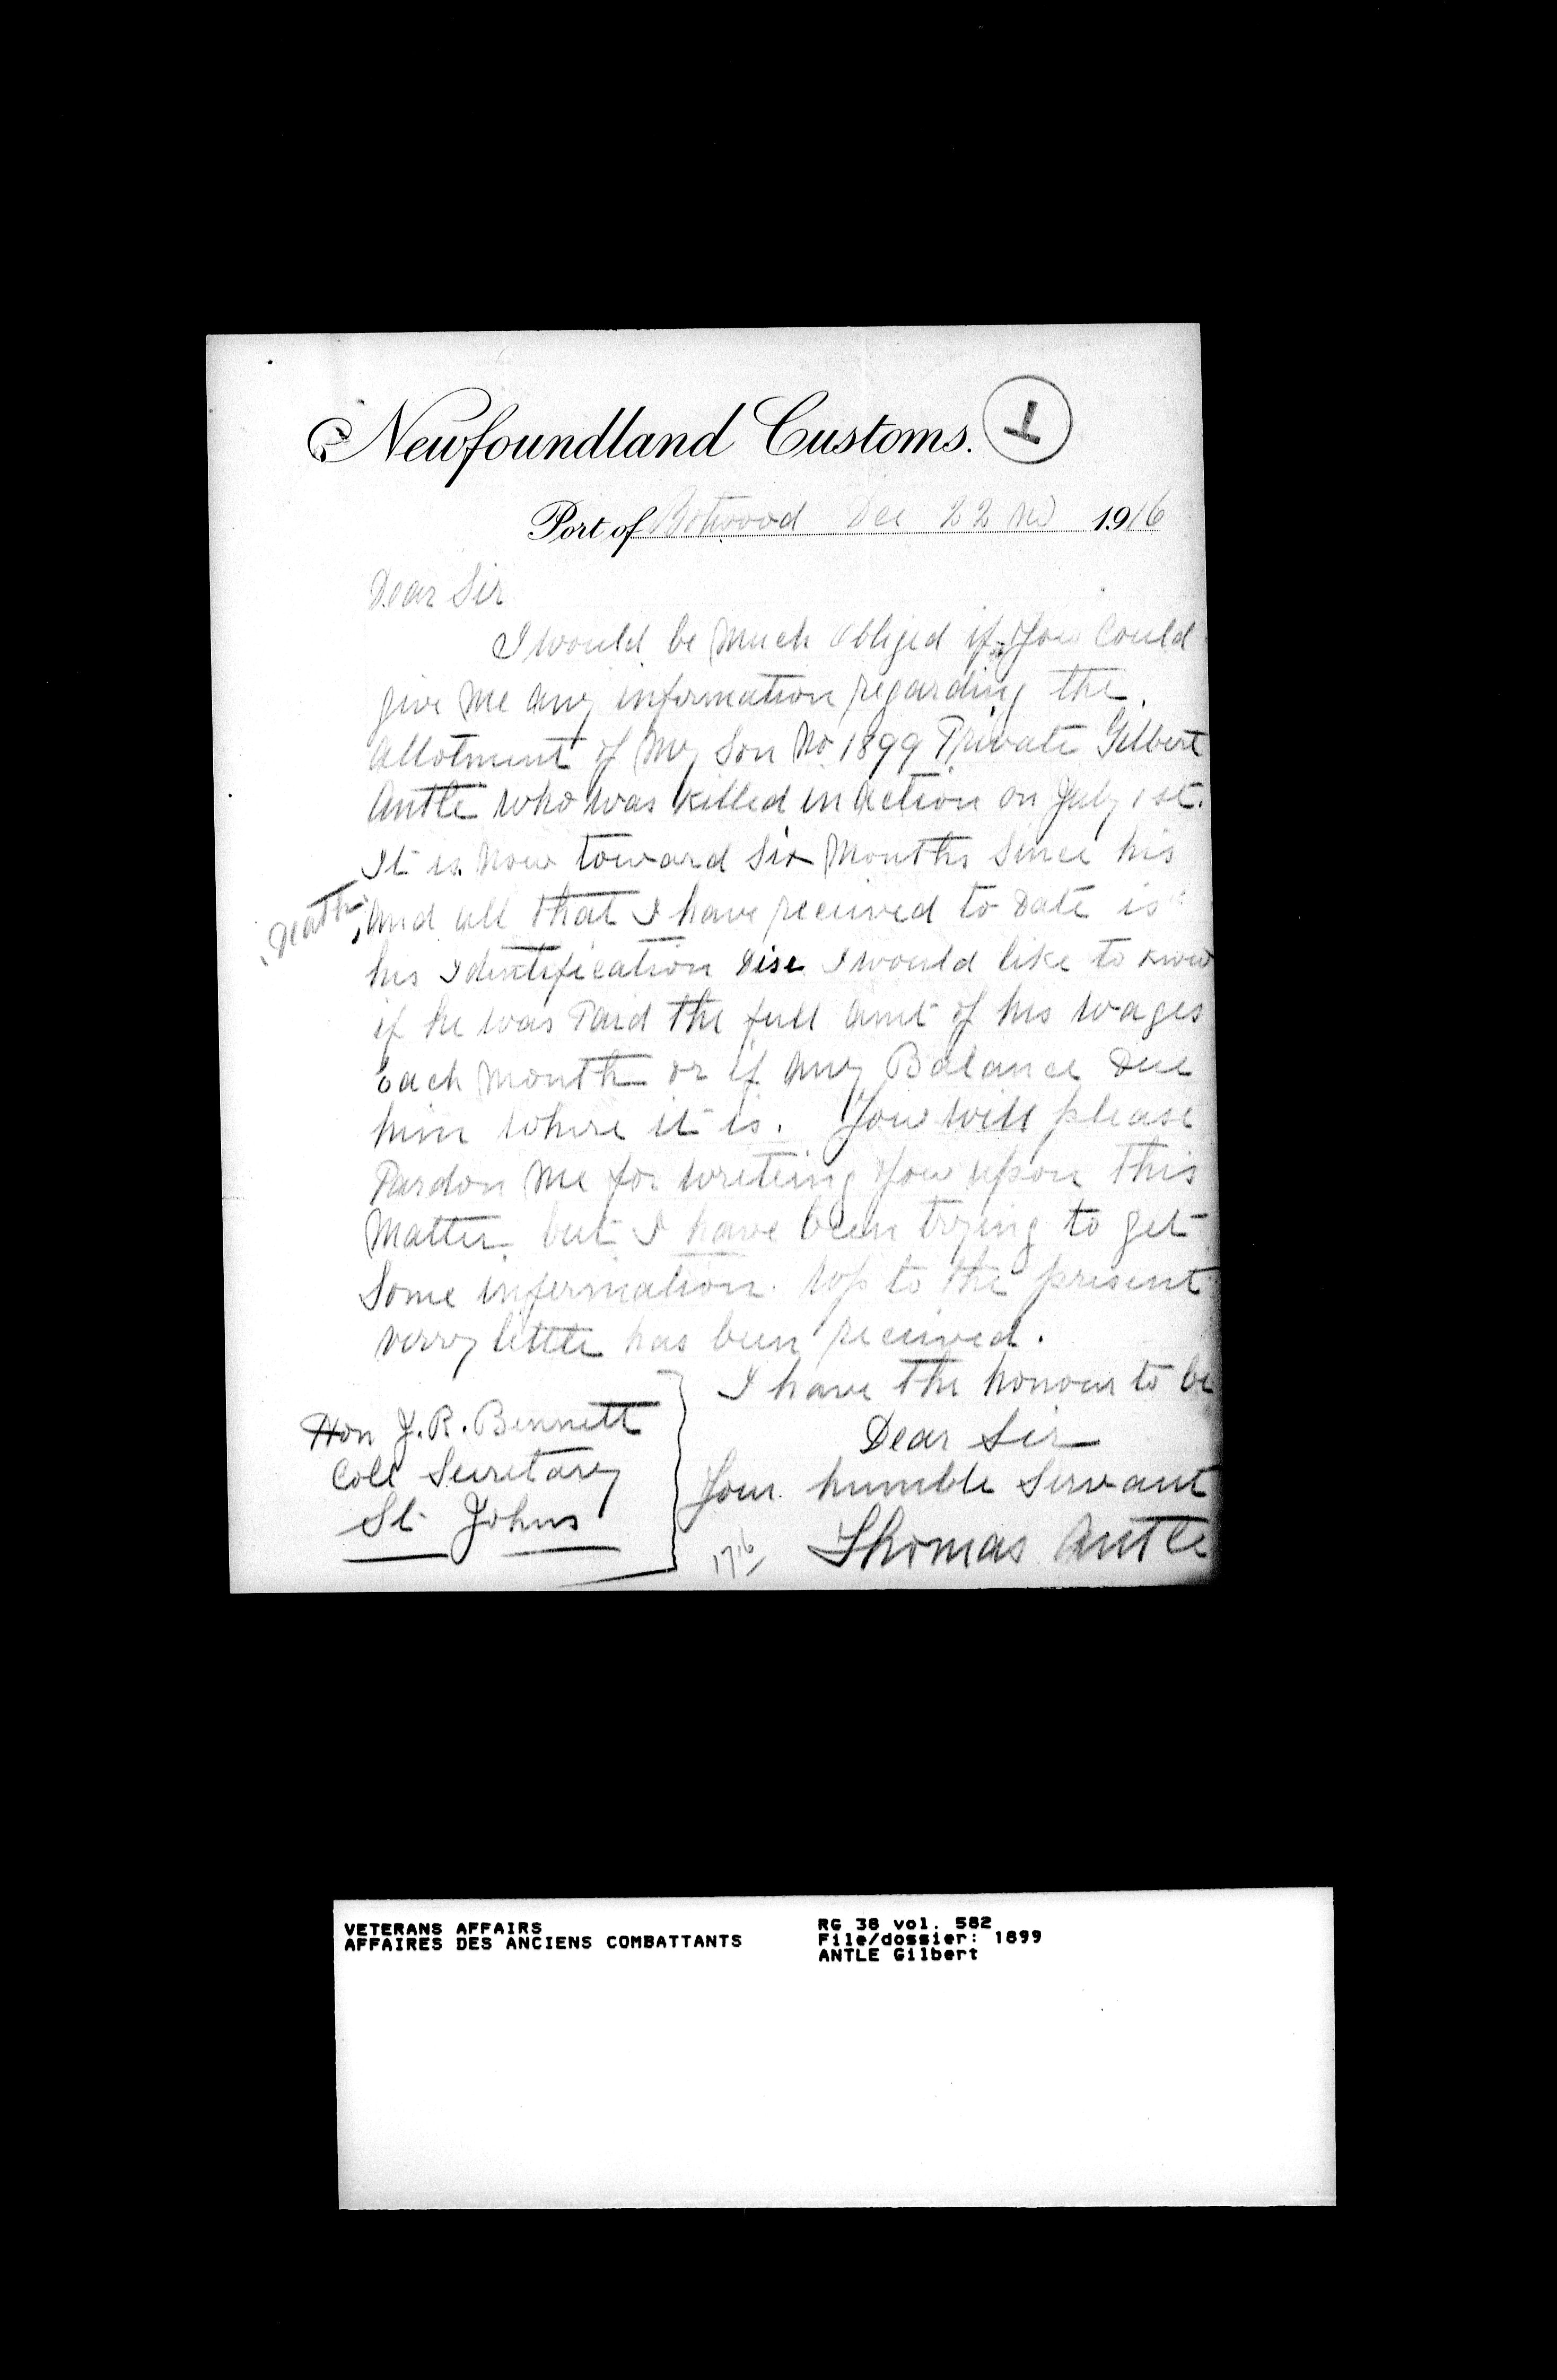 Newfoundland Customs.
Port of Botwood Dec 22nd 1916
Dear Sir
I would be much obliged if you Could
give me any information regarding the
allotment of my Son No 1899 Private Gilbert
Antle who was killed in action on July 1st.
It is now toward Six Months Since his
Death, And all that I have received to Date is
his Identification Disc I would like to know
if he was Paid the full amt of his wages
Each Month or if any Balance Due
him where it is. You will please
Pardon me for writeing you upon this
Matter but I have been trying to get
Some information. Up to the present
verry little has been received.
I have the honour to be
Dear Sir
Your humble Servant
Thomas Antle
Hon J.R. Bennett
Coll Secretary
St Johns
VETERANS AFFAIRS
AFFAIRES DES ANCIENS COMBATTANTS
RG 38 vol. 582
File/dossier: 1899
ANTLE Gilbert